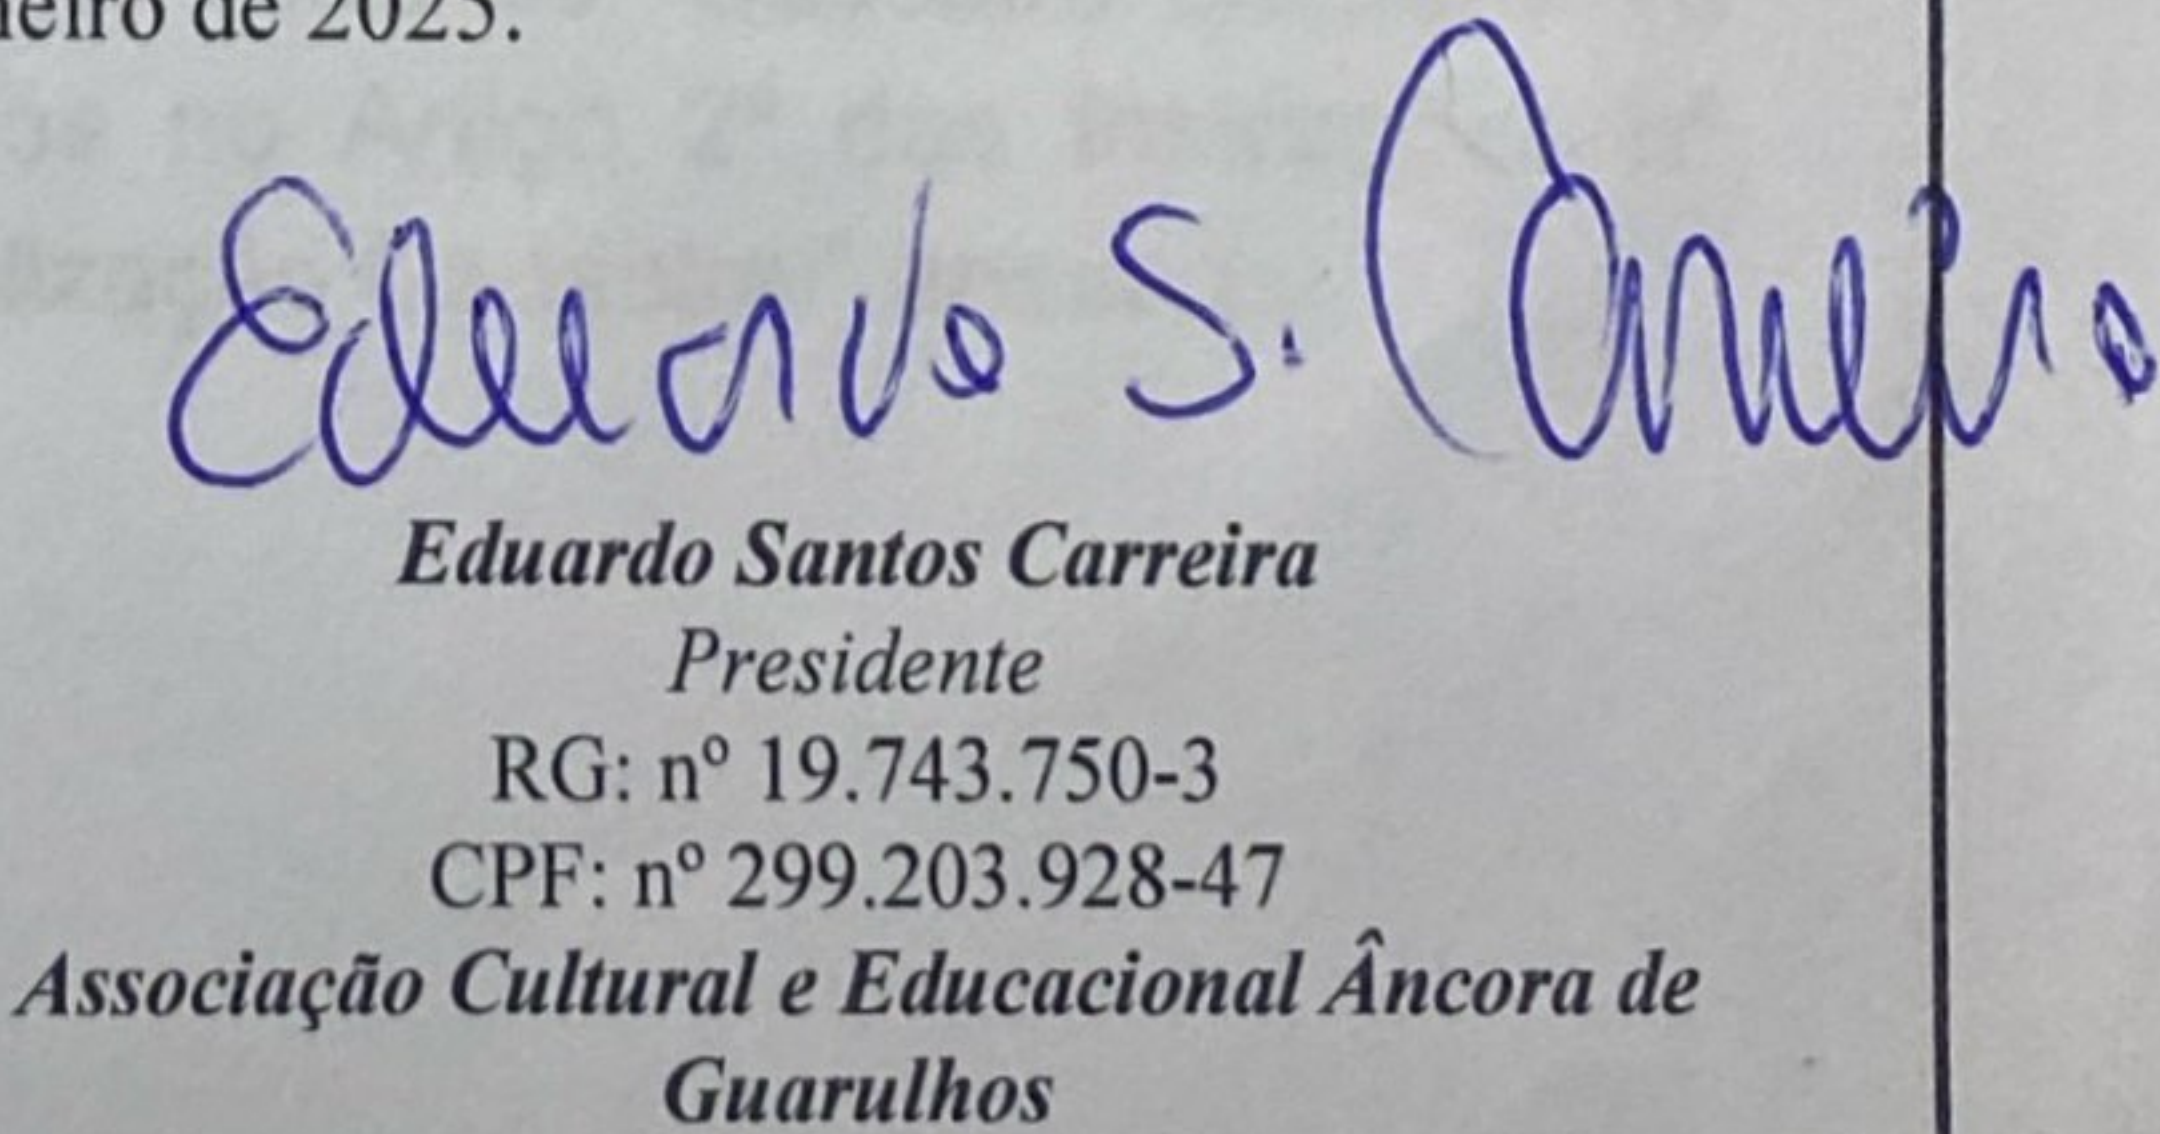 neiro de 2025.
Eduardo S. Carreira
Eduardo Santos Carreira
Presidente
RG: nº 19.743.750-3
CPF: nº 299.203.928-47
Associação Cultural e Educacional Âncora de
Guarulhos